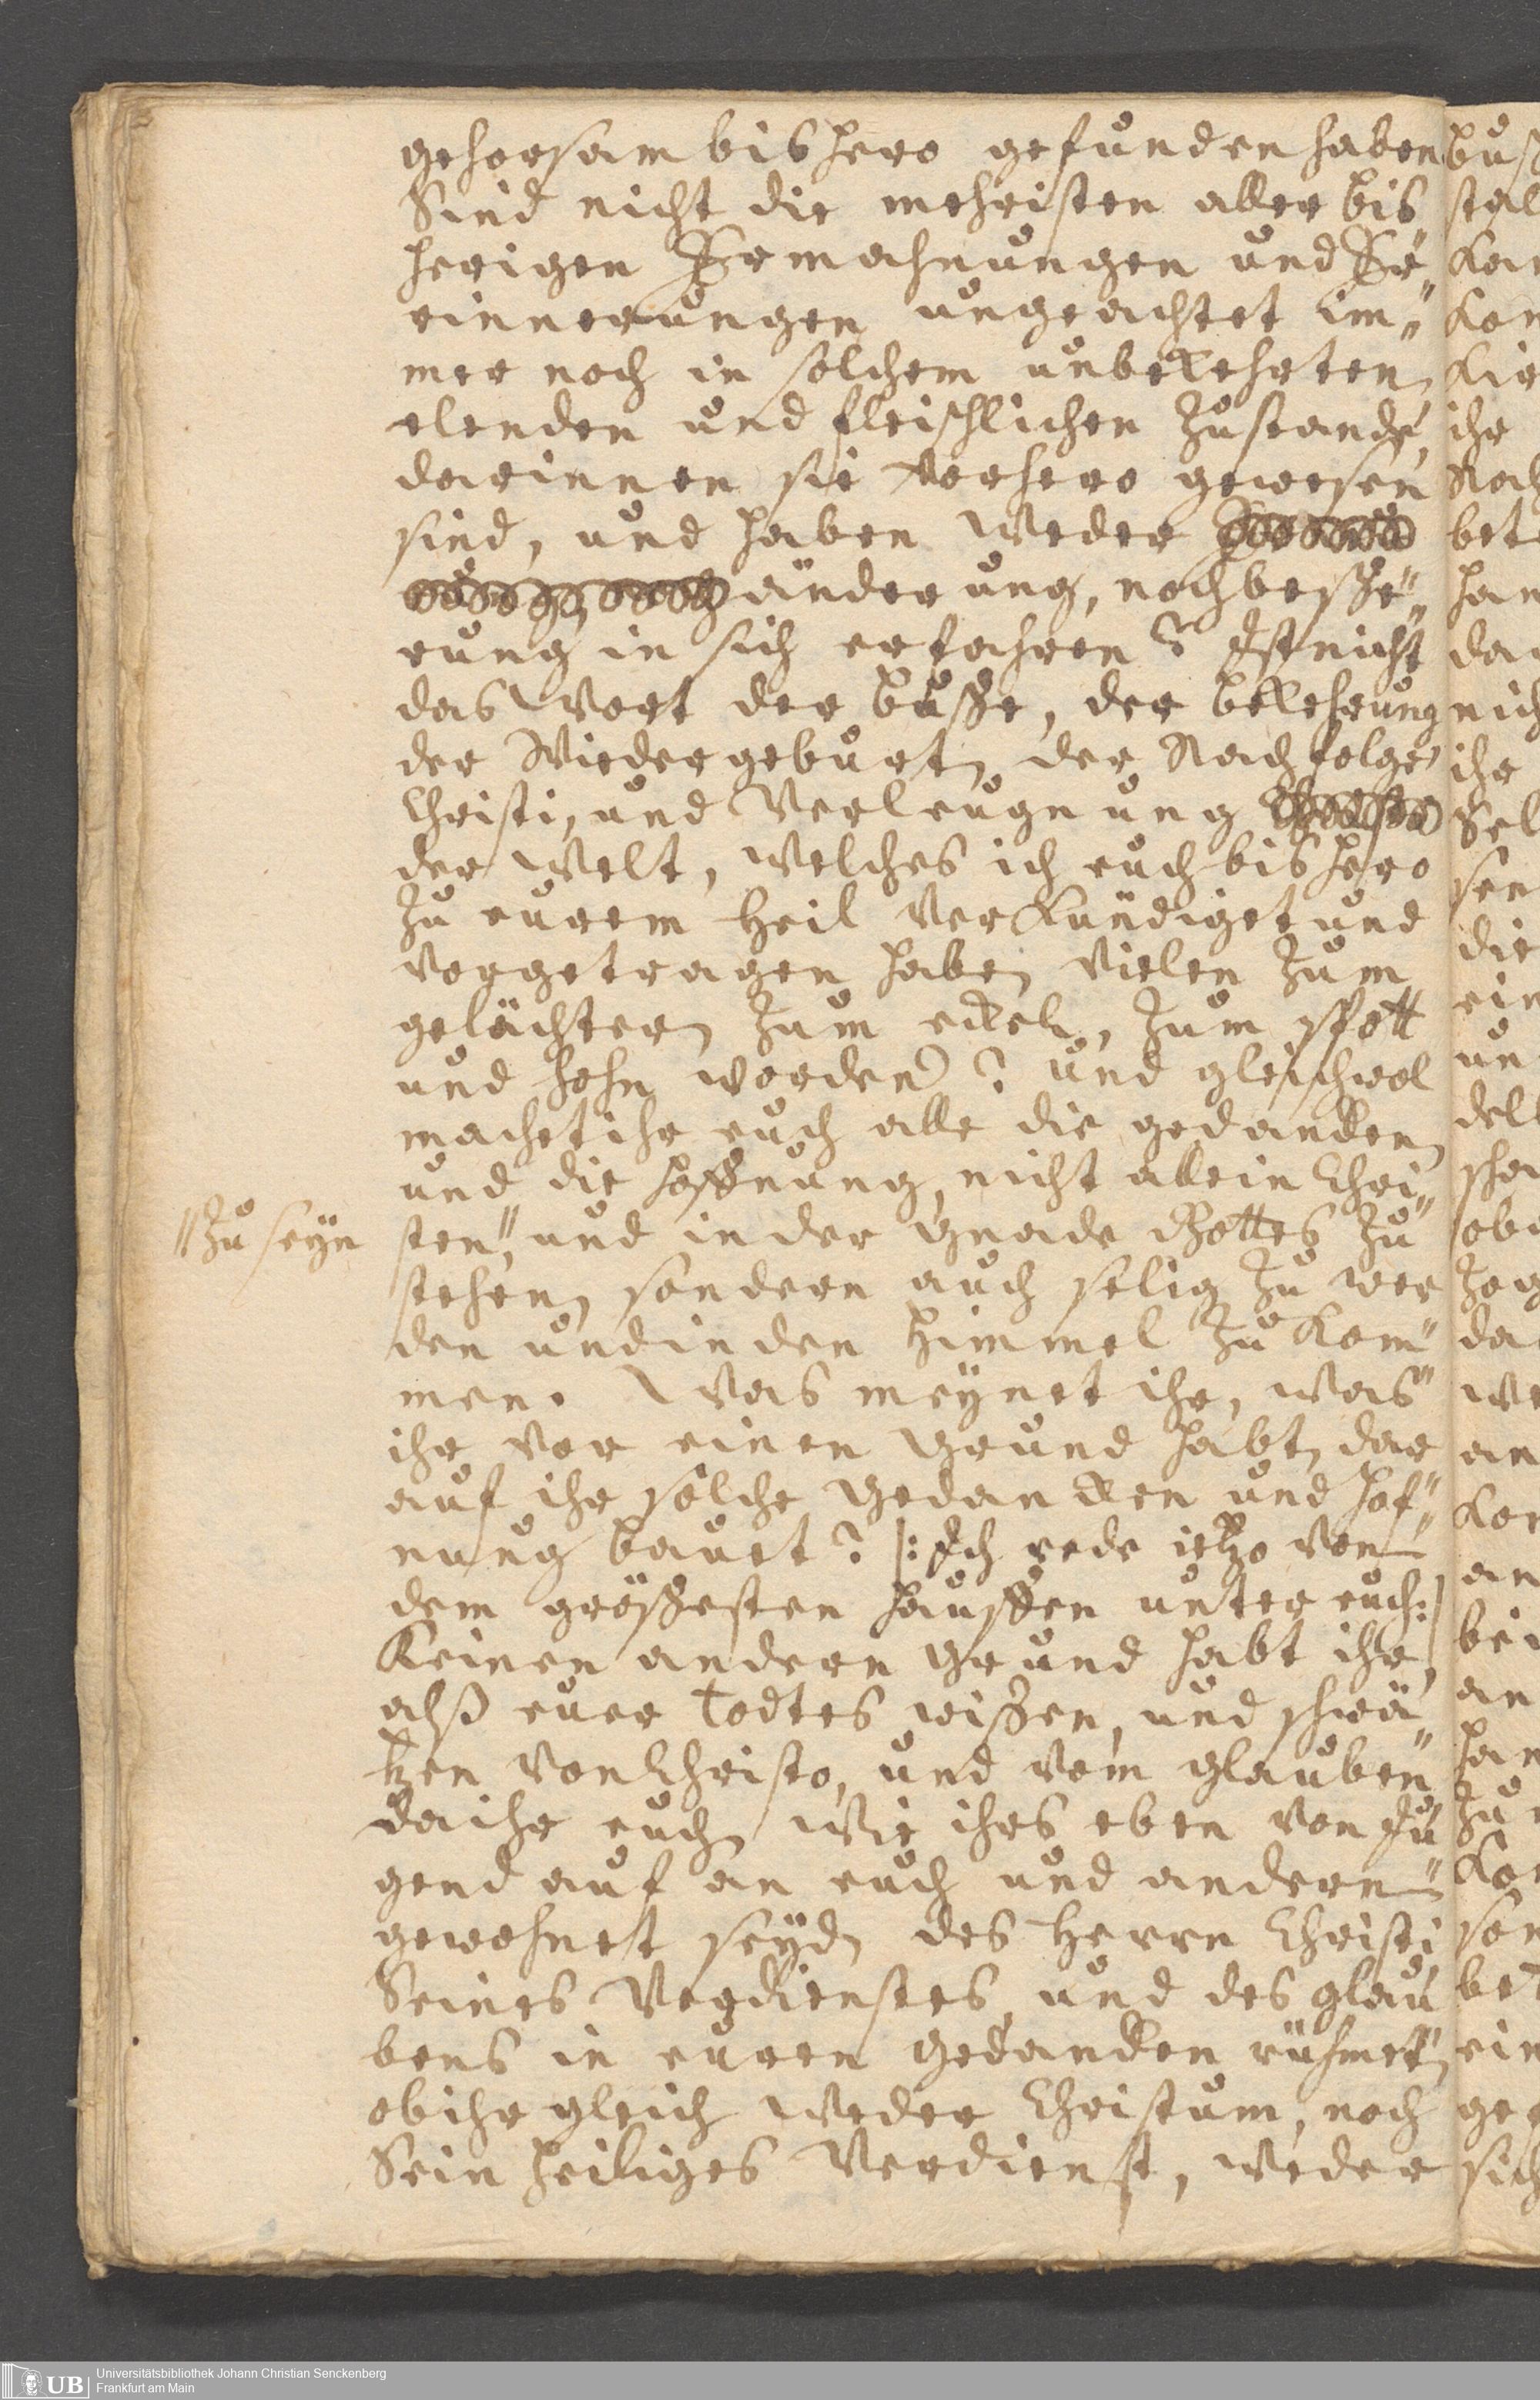 gehorsam bishero gefunden haben
Sind nicht die mehristen aller bis
herigen Ermahnungen und Er„
rinnerungen ungeachtet im„
mer noch in solchem unbekehrten,
elenden und fleischlichen Zustande,
darinnen sie vorhero gewesen
sind, und haben weder
änderung, noch beße„
rung in sich erfahren? Ist nicht
das Wort der buße, der bekehrung
der Wiedergeburt, der Nachfolge
Christi, und Verleugnung
der Welt, welches ich euch bishero
zu eurem Heil verkündiget und
vorgetragen habe, vielen zum
gelächter, zum eckel, zum spott
und hohn worden? und gleichwol
machet ihr euch alle die gedancken
und die hoffnung, nicht allein Chri„
"zu seyn
sten", und in der Gnade Gottes zu
stehen, sondern auch selig zu wer
den und in den Himmel zu kom„
men. Was meynet ihr, was
ihr vor einen Grund habt, dar
auf ihr solche Gedancken und hof„
nung bauet? |: Ich rede ietzo von
dem größesten hauffen unter euch :|
Keinen andern Grund habt ihr,
alß euer todtes wißen, und schwä„
tzen von Christo, und vom glauben
da ihr euch, wie ihrs eben von Ju„
gend auf an euch und andern
gewohnet seyd, des Herrn Christi
Seines Verdienstes, und des glau
bens in euren Gedancken rühmet,
ob ihr gleich weder Christum, noch
Sein heiliges Verdienst, weder
UB
Universitätsbibliothek Johann Christian Senckenberg
Frankfurt am Main